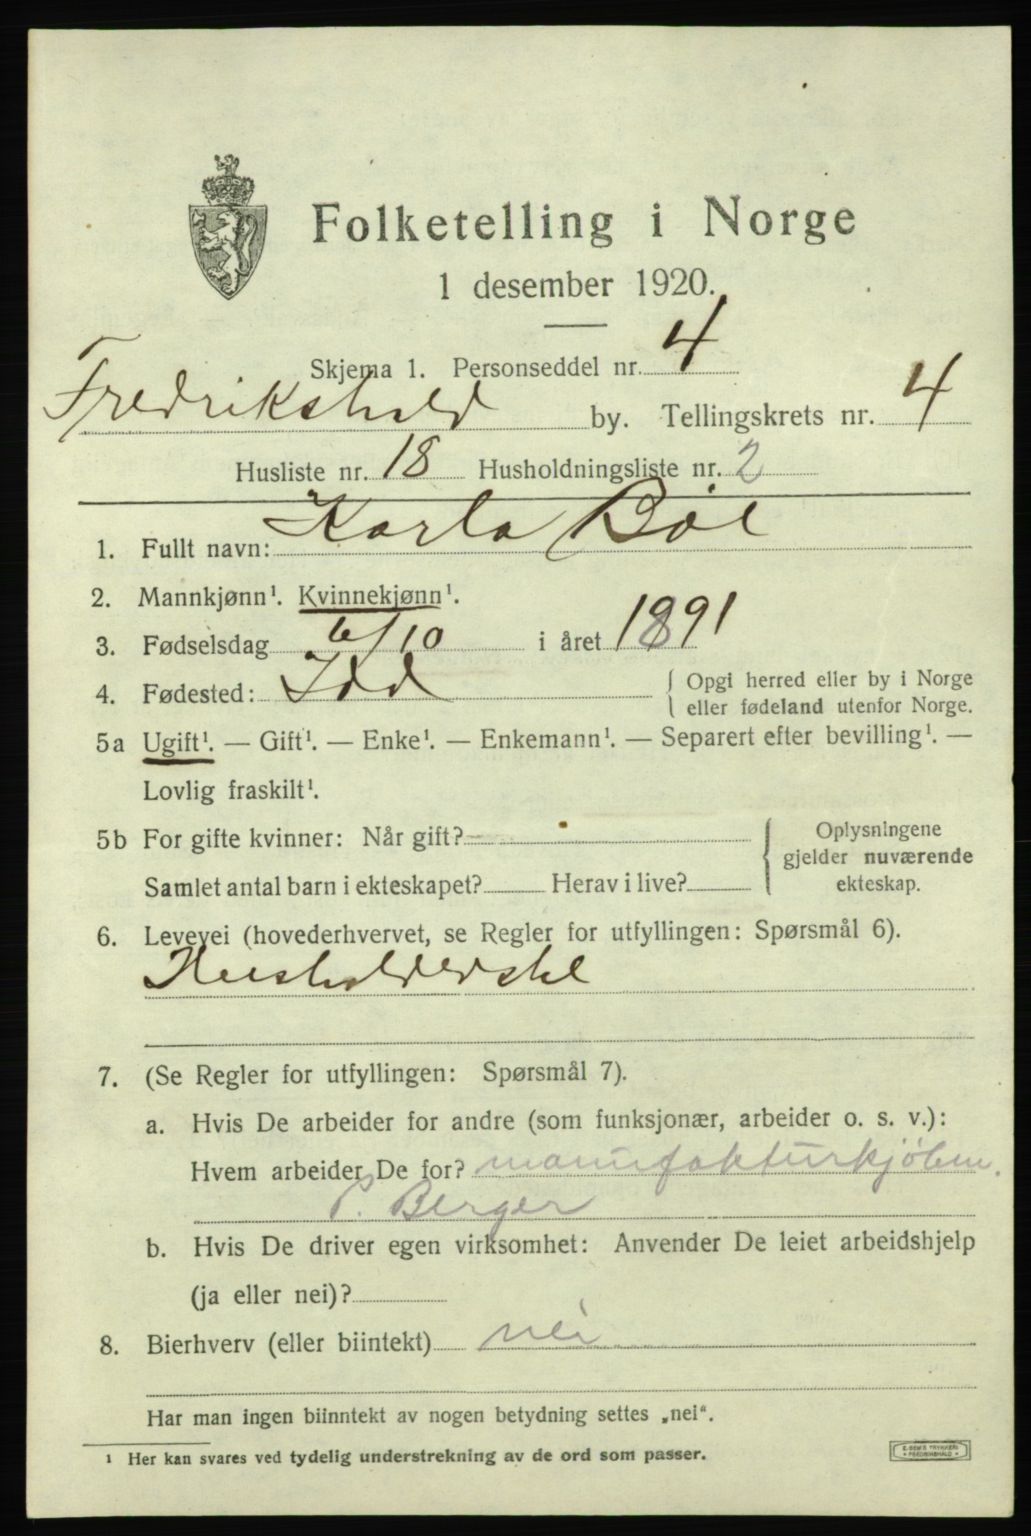 Folketelling i Norge
1 desember 1920.
Skjema 1. Personseddel nr. 4
Fredrikshald by. Tellingskrets nr. 4
Husliste nr. 18 Husholdningsliste nr. 2
1. Fullt navn: Karla Böe
2. Mannkjønn¹. Kvinnekjønn¹.
3. Fødselsdag 6/10 i året 1891
4. Fødested: Idd { Opgi herred eller by i Norge
eller fødeland utenfor Norge.
5a Ugift¹. — Gift¹. — Enke¹. — Enkemann¹. — Separert efter bevilling¹. —
Lovlig fraskilt¹.
5b For gifte kvinner: Når gift? { Oplysningene
gjelder nuværende
Samlet antal barn i ekteskapet? Herav i live? ekteskap.
6. Levevei (hovederhvervet, se Regler for utfyllingen: Spørsmål 6).
7. (Se Regler for utfyllingen: Spørsmål 7).
a. Hvis De arbeider for andre (som funksjonær, arbeider o. s. v.):
Hvem arbeider De for? manufakturkjöbm.
P. Berger
b. Hvis De driver egen virksomhet: Anvender De leiet arbeidshjelp
(ja eller nei)?
8. Bierhverv (eller biintekt) nei
Har man ingen biinntekt av nogen betydning settes „nei“.
¹ Her kan svares ved tydelig understrekning av de ord som passer.
E. SEM'S TRYKKERI
FREDRIKSHALD